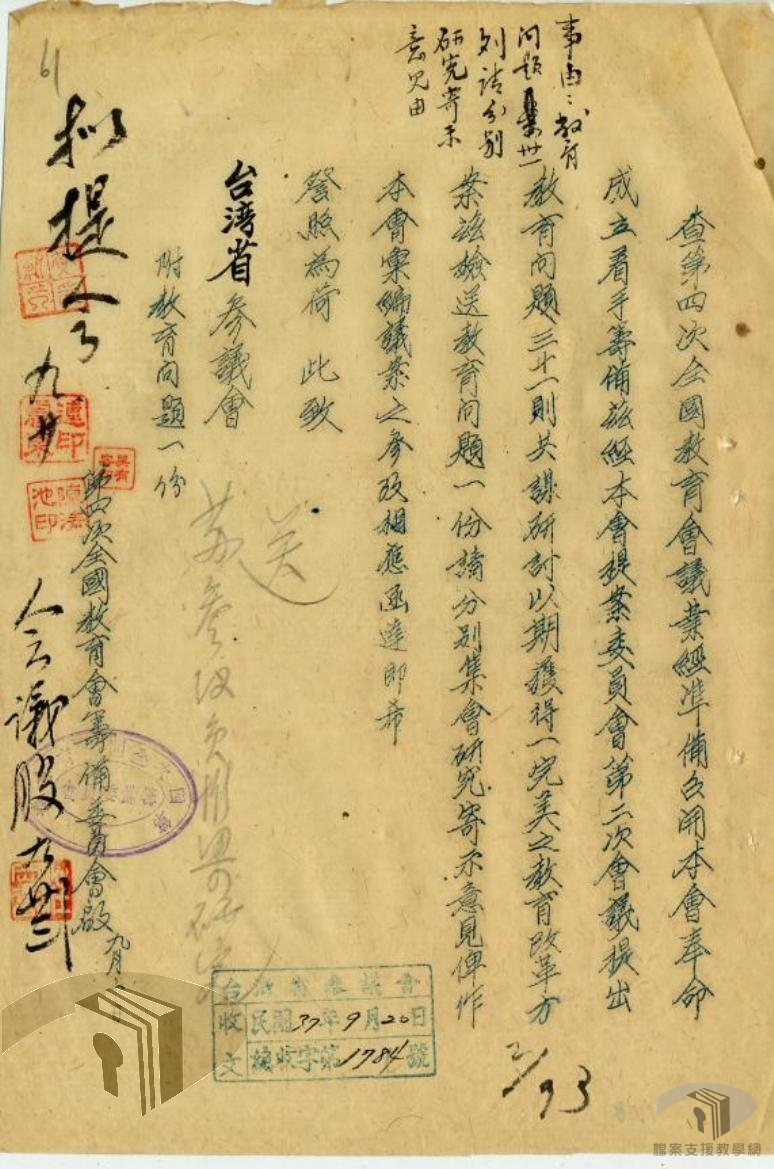 事由：教育
问題集卅一
列請分別
研究寄示
意见由
查第四次全國教育會議業經准備召開本會奉命
成立着手籌備茲經本會提案委員會第二次會議提出
教育问題三十一則共謀研討以期獲得一完美之教育改革方
案茲檢送教育问題一份請分别集會研究寄示意見俾作
本會彙編議案之參攷相應函達即希
詧照為荷 此致
台湾省參議會
附教育问題一份
第四次全國教育會籌備委員會啟 九月
送
拟提会 九廿
会議股
台灣省參議會
收文
民國37年9月20日
總收字第1784號
2/93
61
檔案支援教學網